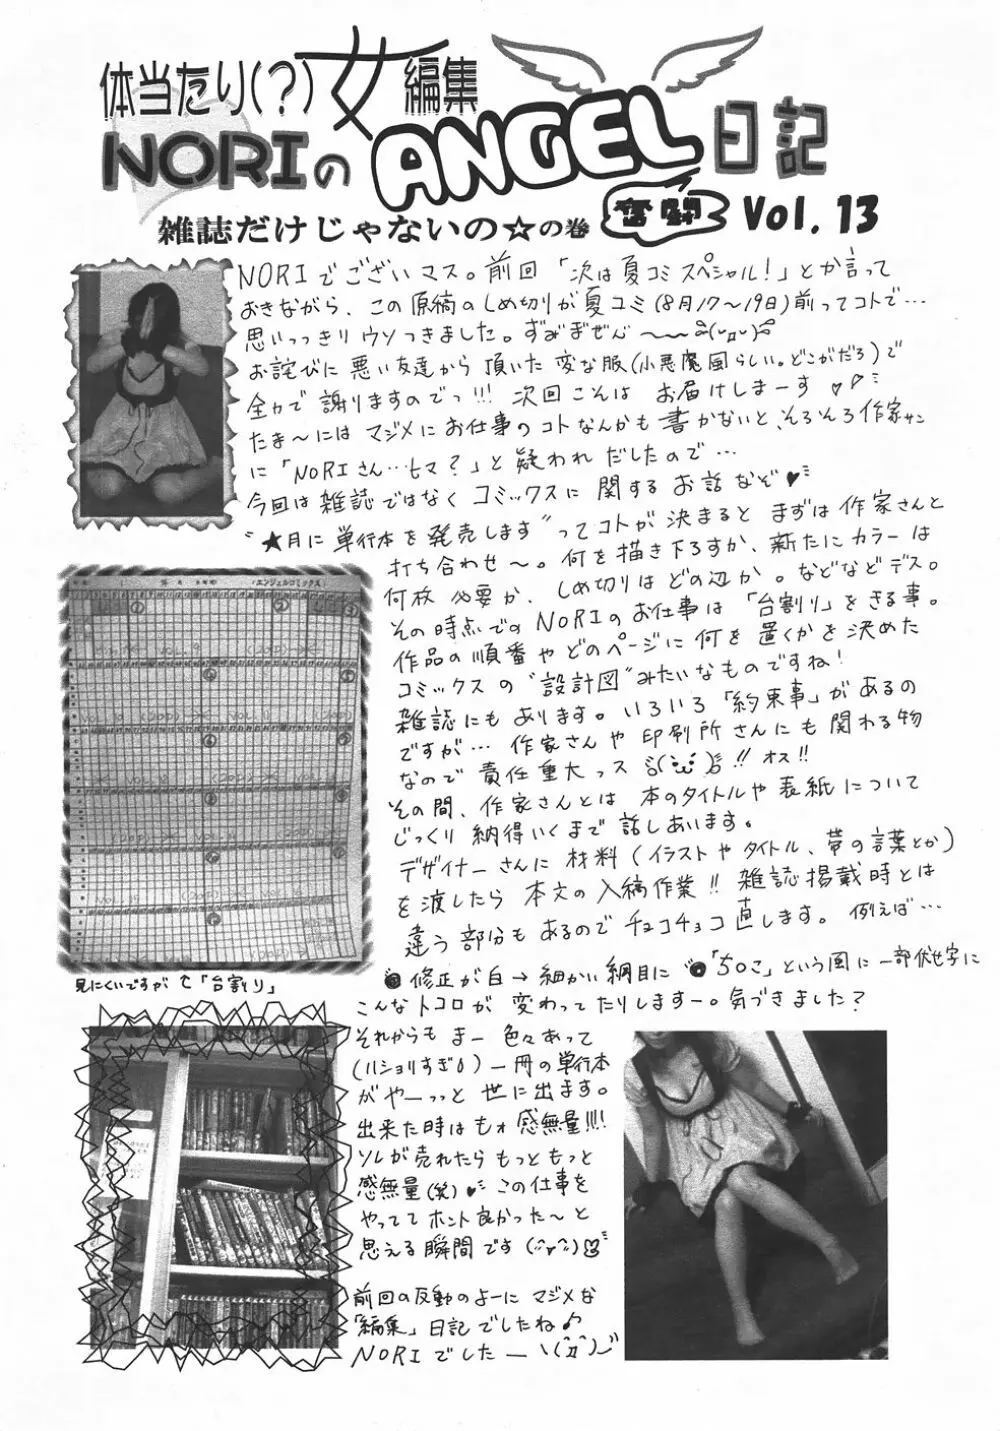 体当たり(?)女編集
NORIのANGEL日記
奮闘
Vol. 13
雑誌だけじゃないの☆の巻
NORIでございマス。前回「次は夏コミスペシャル!」とか言って
おきながら、この原稿のしめ切りが夏コミ(8月17〜19日)前ってコトで…
思いっっきりウソつきました。ずみまぜん〜〜
お詫びに悪い友達から頂いた変な服(小悪魔風らしい。どこがだろ)で
全力で謝りますのでっ!!! 次回こんはお届けしまーす♥
たま〜にはマジメにお仕事のコトなんかも書かないと、そろそろ作家サン
に「NORIさん…ヒマ?」と疑われだしたので…
今回は雑誌ではなくコミックスに関するお話なぞ♥
"★月に単行本を発売します"ってコトが決まるとまずは作家さんと
打ち合わせ〜。何を描き下ろすか、新たにカラーは
何枚必要か、しめ切りはどの辺か。などなどデス。
その時点でのNORIのお仕事は「台割り」をきる事。
作品の順番やどのページに何を置くかを決めた
コミックスの"設計図"みたいなものですね!
雑誌にもあります。いろいろ「約束事」があるの
ですが…作家さんや印刷所さんにも関わる物
なので責任重大っス!! オス!!
その間、作家さんとは本のタイトルや表紙について
じっくり納得いくまで話しあいます。
デザイナーさんに材料(イラストやタイトル、帯の言葉とか)
を渡したら本文の入稿作業!! 雑誌掲載時とは
違う部分もあるのでチョコチョコ直します。例えば…
●修正が白→細かい網目に ●「ち○こ」という風に一部伏せ字に
こんなトコロが変わってたりしますー。気づきました?
(エンジェルコミックス)
見にくいですが↑「台割り」
それからもまー色々あって
(ハショリすぎ)一冊の単行本
がやーっっと世に出ます。
出来た時はもォ感無量!!!!
ソレが売れたらもっともっと
感無量(笑)♥この仕事を
やっててホント良かった〜と
思える瞬間です
前回の反動のよーにマジメな
「編集」日記でしたね♪
NORIでしたー